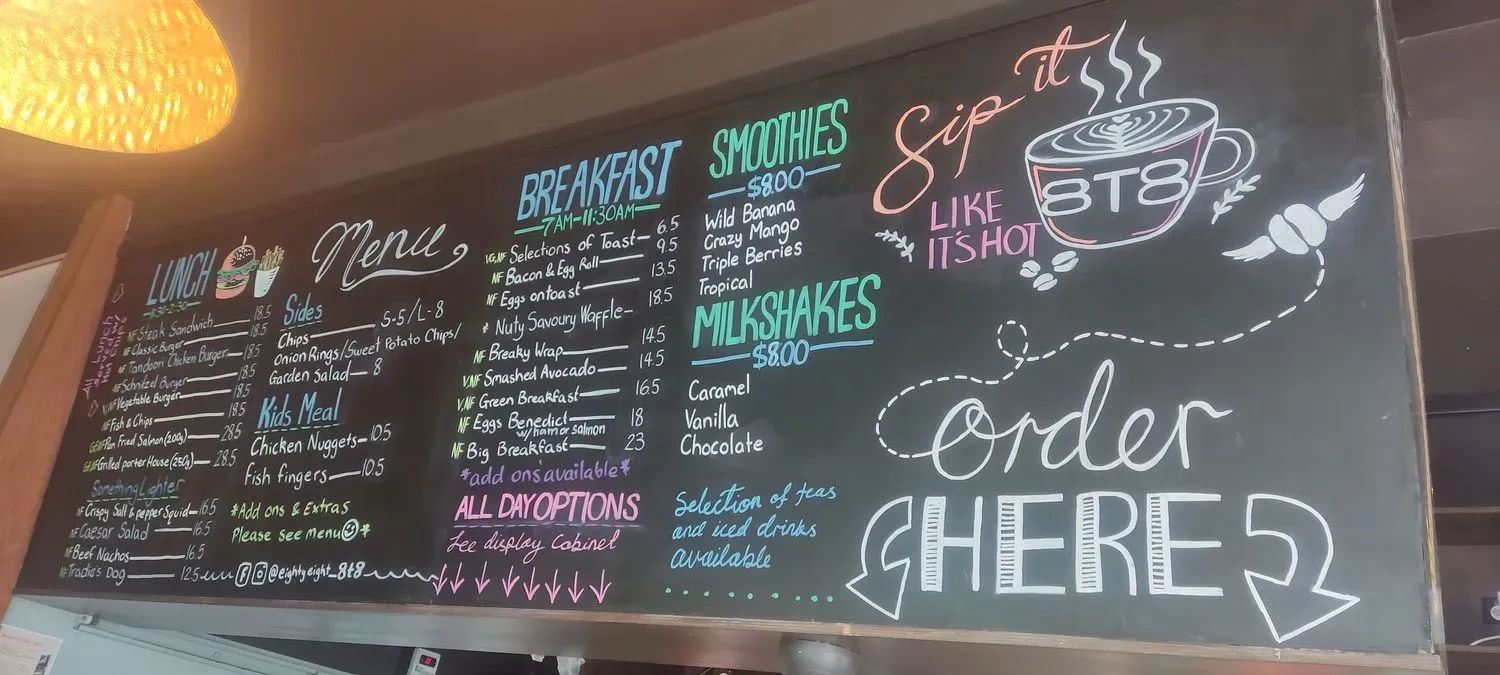 LUNCH
11:30-2:30
NF Steak Sandwich 18.5
NF Classic Burger 18.5
NF Tandoori Chicken Burger 18.5
NF Schnitzel Burger 18.5
V,NF Vegetable Burger 18.5
NF Fish & Chips 18.5
GF,NF Pan Fried Salmon (200g) 28.5
GF,NF Grilled porter House (250g) 28.5
Something Lighter
NF Crispy Salt & pepper Squid 16.5
NF Caesar Salad 16.5
NF Beef Nachos 16.5
NF Tradie's Dog 12.5
Menu
Sides
Chips S-5/L-8
Onion Rings/Sweet Potato Chips/
Garden Salad 8
Kids Meal
Chicken Nuggets 10.5
Fish fingers 10.5
*Add ons & Extras
Please see menu *
@eightyeight_8t8
BREAKFAST
7AM-11:30AM
VG,NF Selections of Toast 6.5
NF Bacon & Egg Roll 9.5
NF Eggs on toast 13.5
* Nuty Savoury Waffle 18.5
NF Breaky Wrap 14.5
V,NF Smashed Avocado 14.5
V,NF Green Breakfast 16.5
NF Eggs Benedict 18
w/ ham or salmon
NF Big Breakfast 23
*add ons available*
ALL DAY OPTIONS
See display Cabinet
SMOOTHIES
$8.00
Wild Banana
Crazy Mango
Triple Berries
Tropical
MILKSHAKES
$8.00
Caramel
Vanilla
Chocolate
Selection of teas
and iced drinks
available
Sip it
LIKE
IT'S HOT
8T8
Order
HERE